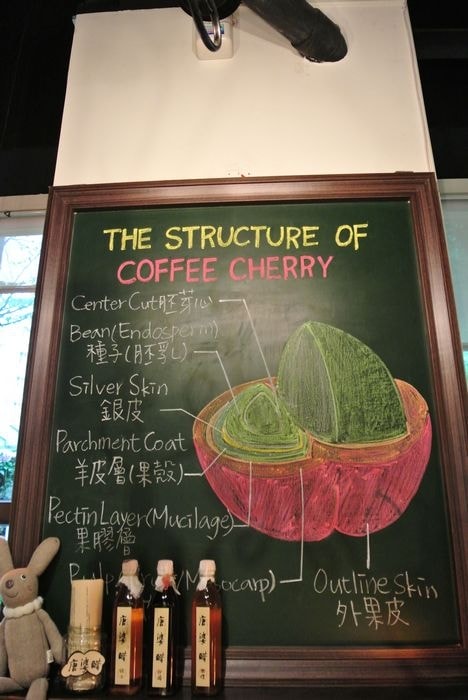 THE STRUCTURE OF
COFFEE CHERRY
Center Cut胚芽心
Bean(Endosperm)
種子(胚乳)
Silver Skin
銀皮
Parchment Coat
羊皮層(果殼)
Pectin Layer(Mucilage)
果膠層
Outline Skin
外果皮
唐婆醋
唐婆醋
唐婆醋
唐婆醋